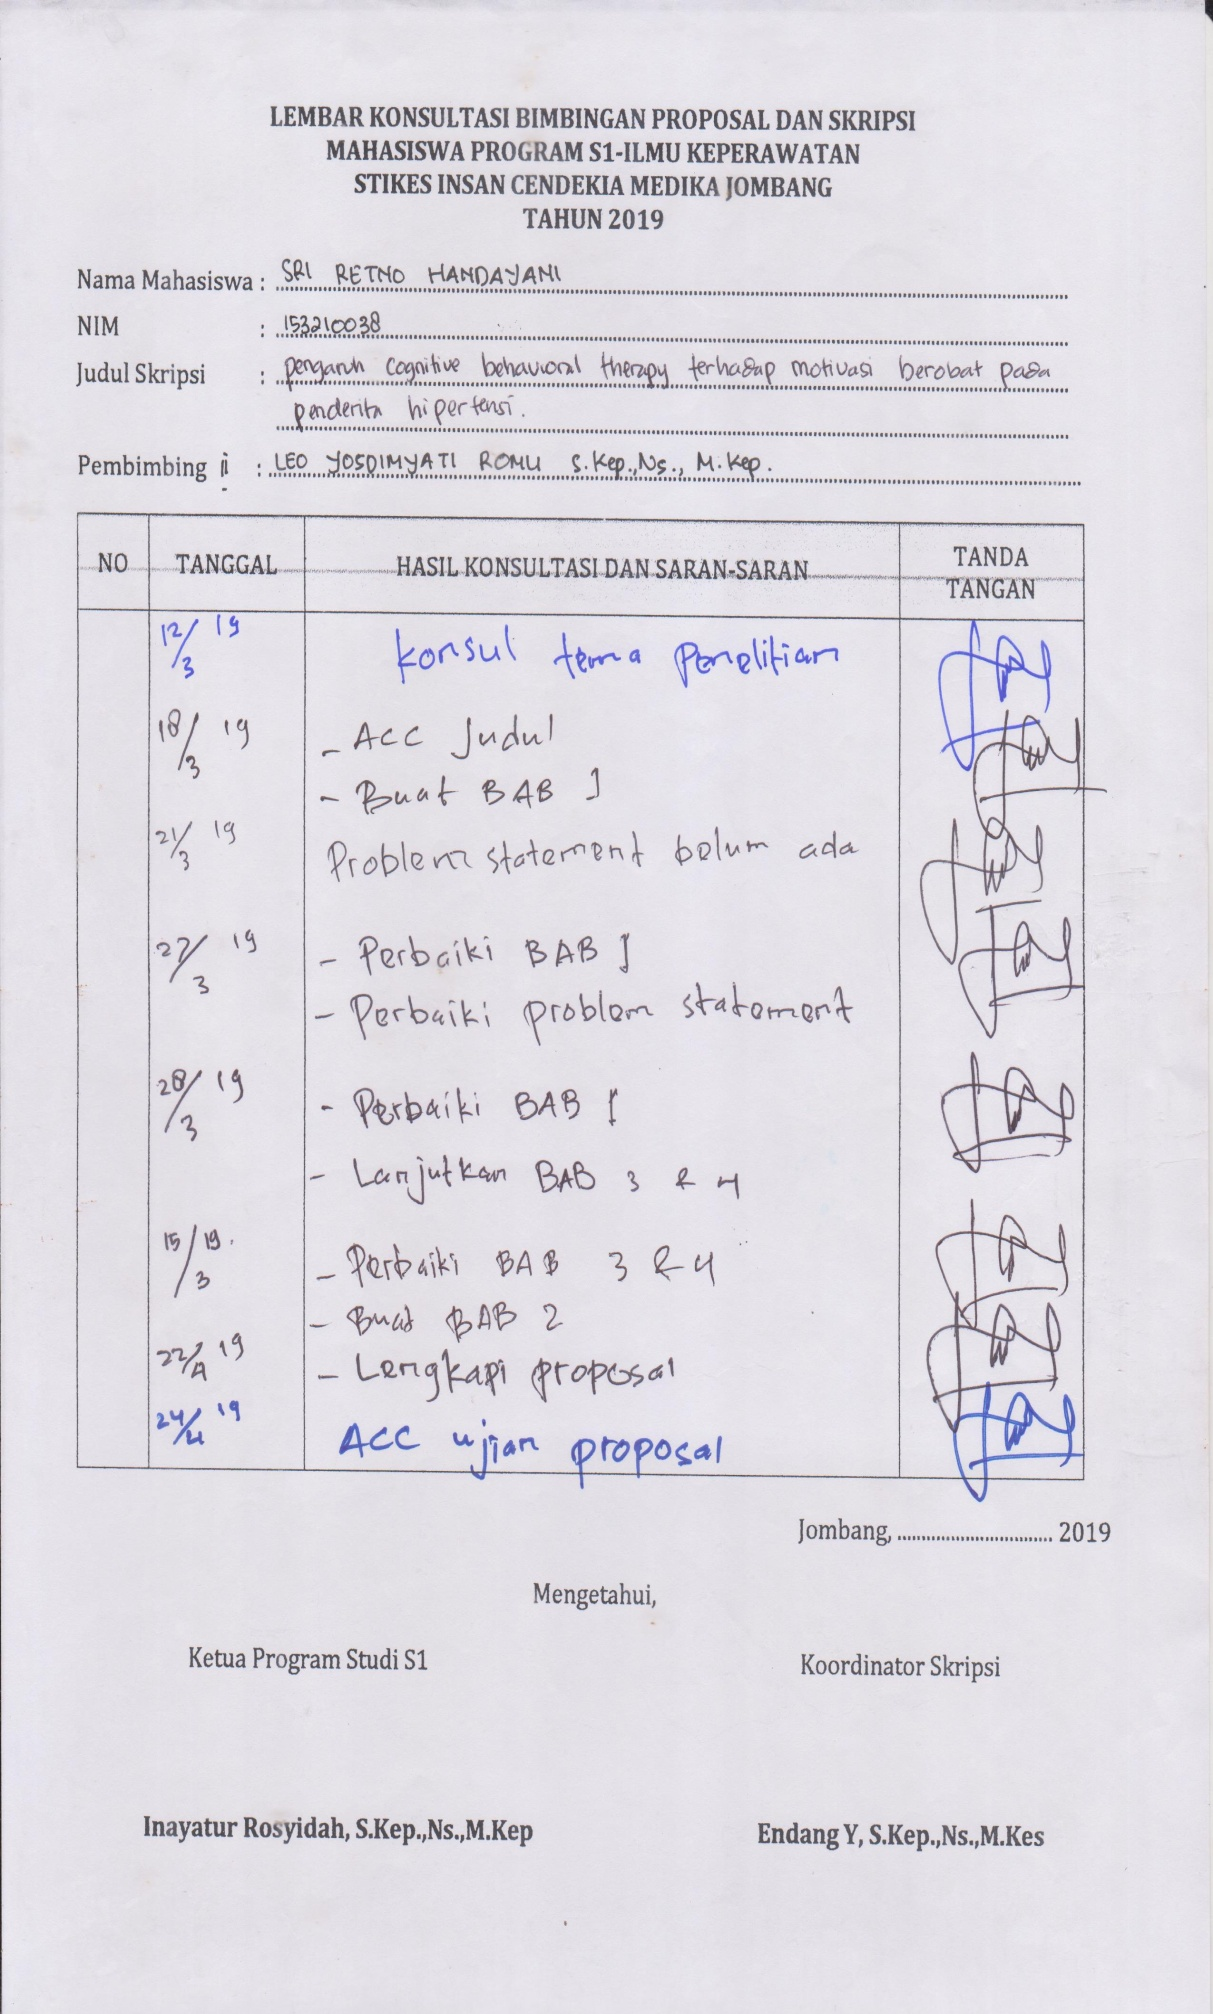 LEMBAR KONSULTASI BIMBINGAN PROPOSAL DAN SKRIPSI
MAHASISWA PROGRAM S1-ILMU KEPERAWATAN
STIKES INSAN CENDEKIA MEDIKA JOMBANG
TAHUN 2019
Nama Mahasiswa : SRI RETNO HANDAYANI
NIM : 153210038
Judul Skripsi : pengaruh cognitive behavioral therapy terhadap motivasi berobat pada
penderita hipertensi.
Pembimbing ii : LEO YOSDIMYATI ROMLI S.Kep.,Ns., M.Kep.
NO TANGGAL HASIL KONSULTASI DAN SARAN-SARAN TANDA TANGAN
12/3 19 Konsul tema penelitian
18/3 19 - ACC Judul
- Buat BAB I
21/3 19 Problem statement belum ada
27/3 19 - Perbaiki BAB I
- Perbaiki problem statement
28/3 19 - Perbaiki BAB I
- Lanjutkan BAB 3 & 4
15/3 19. - Perbaiki BAB 3 & 4
- Buat BAB 2
22/4 19 - Lengkapi proposal
24/4 19 ACC ujian proposal
Jombang, .................................. 2019
Mengetahui,
Ketua Program Studi S1 Koordinator Skripsi
Inayatur Rosyidah, S.Kep.,Ns.,M.Kep Endang Y, S.Kep.,Ns.,M.Kes